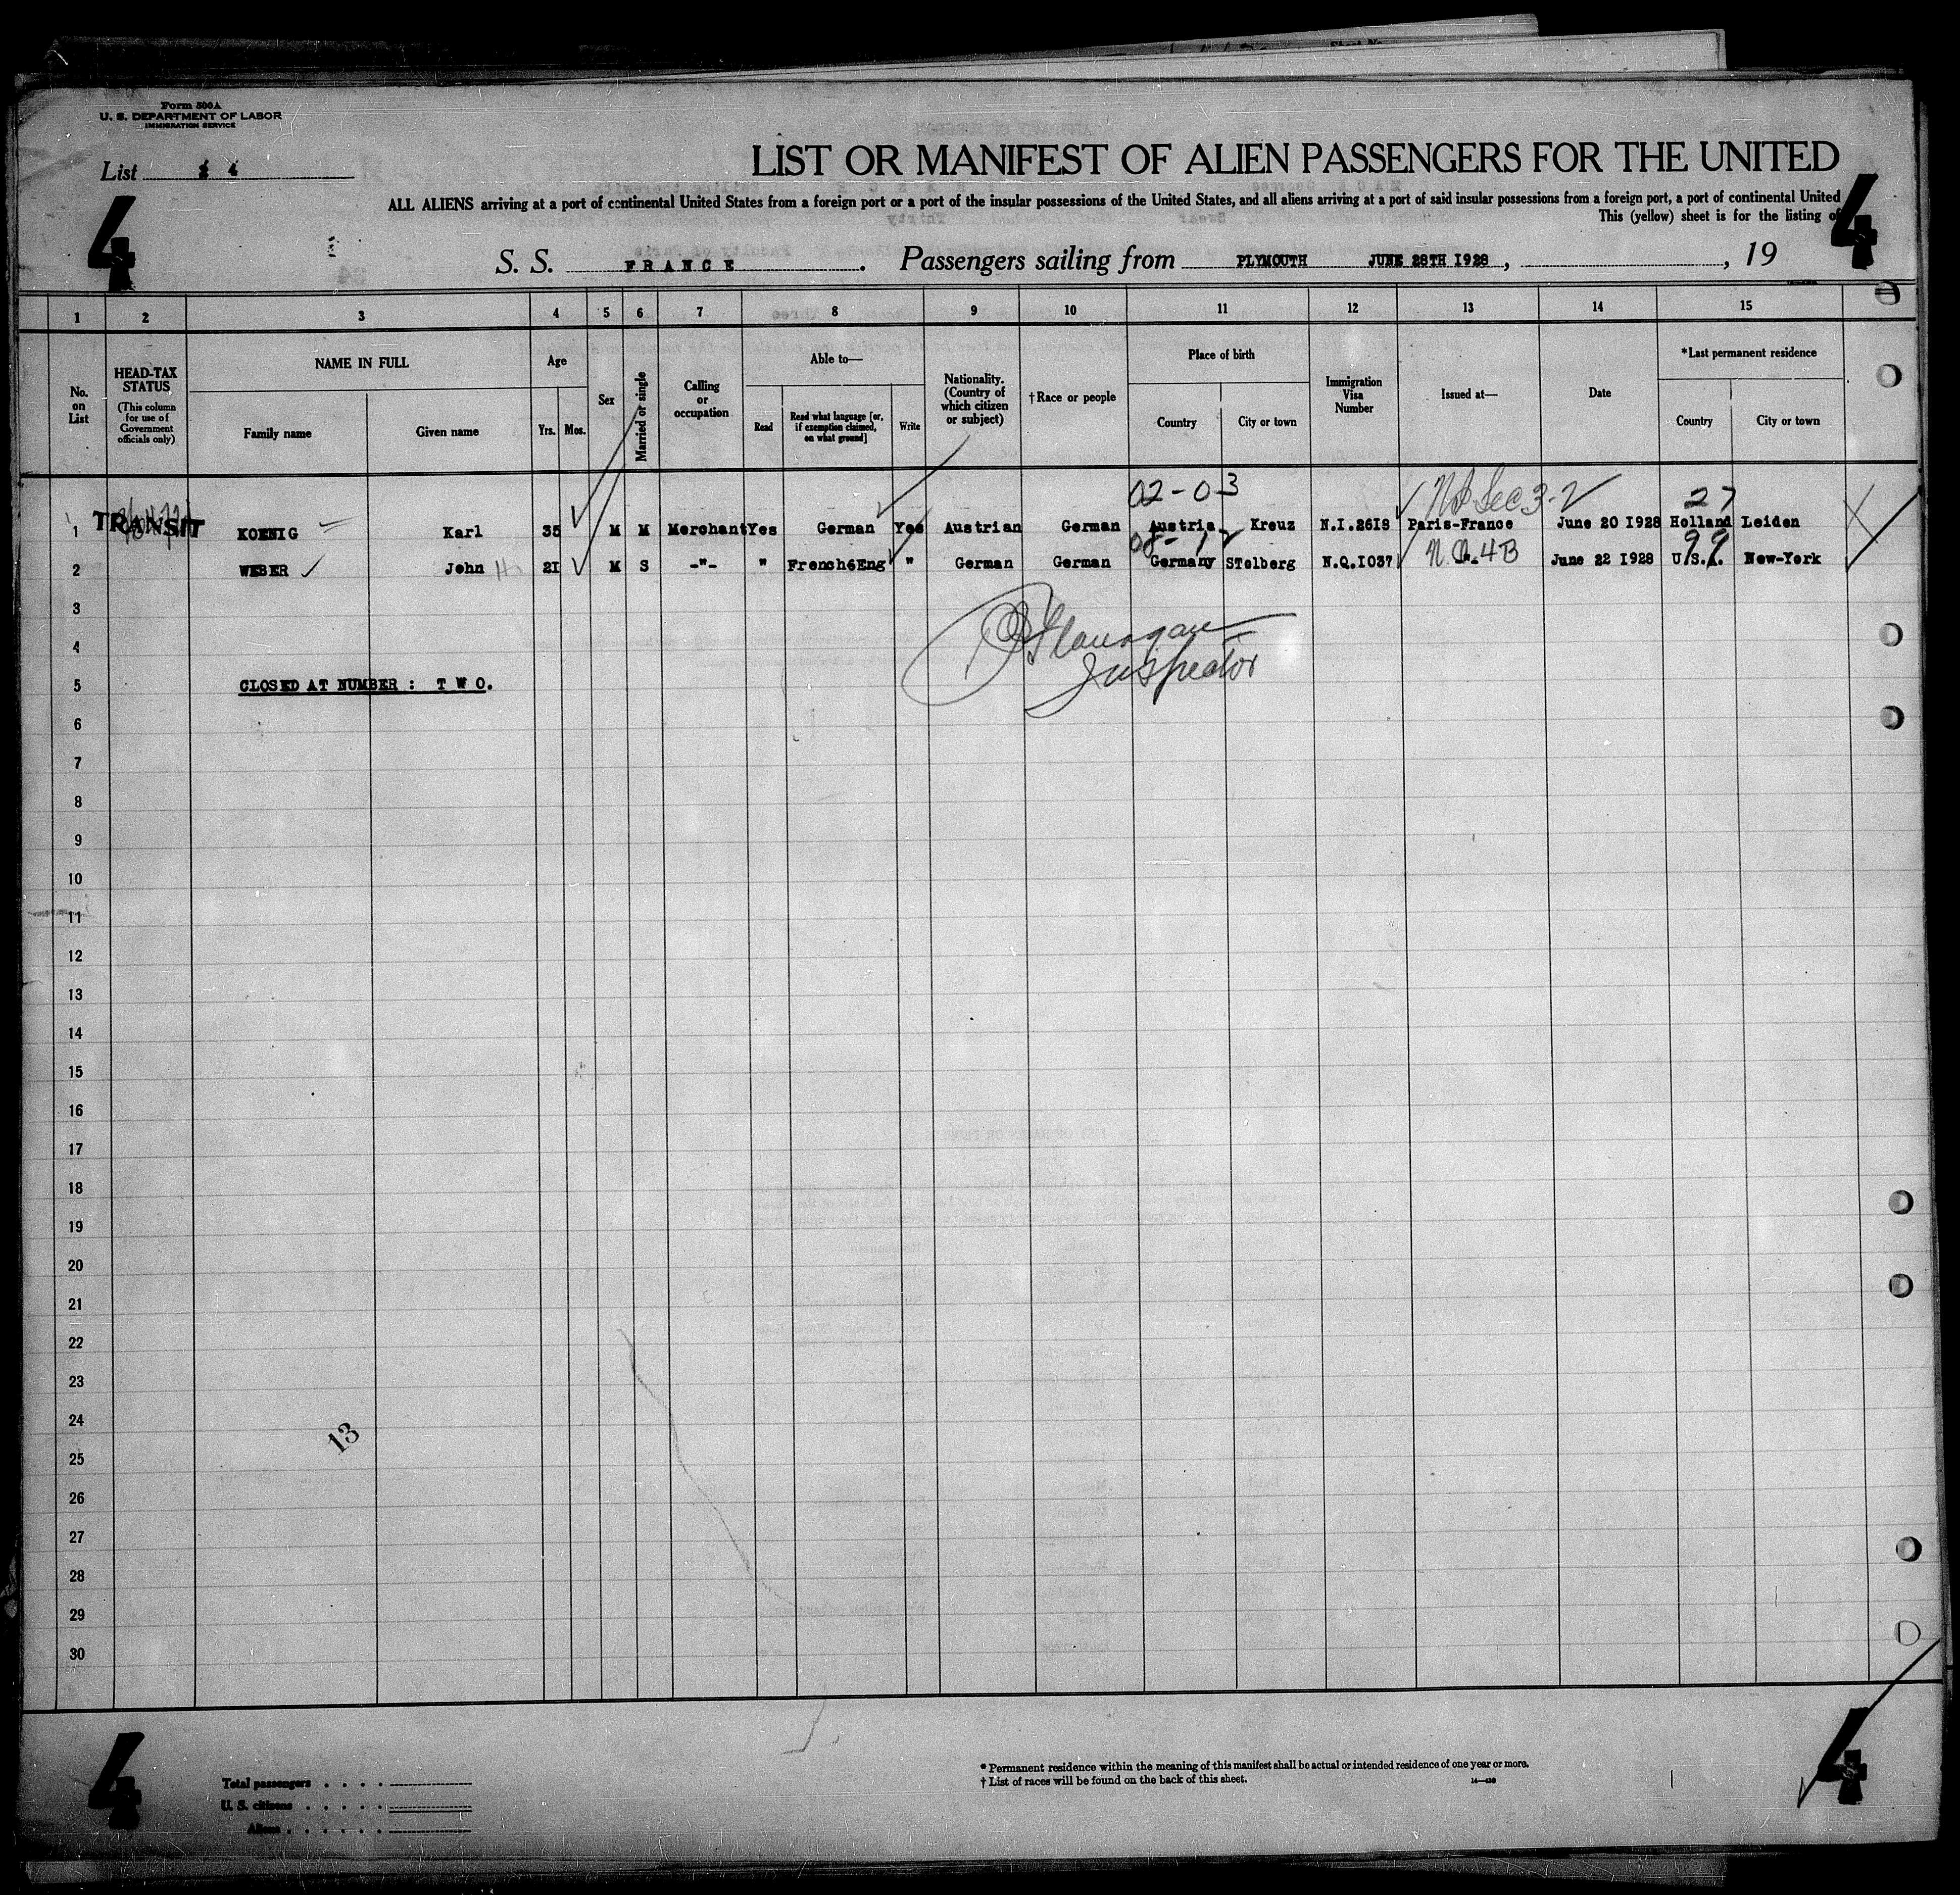 Form 500A
U. S. DEPARTMENT OF LABOR
IMMIGRATION SERVICE
List 4
LIST OR MANIFEST OF ALIEN PASSENGERS FOR THE UNITED
ALL ALIENS arriving at a port of continental United States from a foreign port or a port of the insular possessions of the United States, and all aliens arriving at a port of said insular possessions from a foreign port, a port of continental United
This (yellow) sheet is for the listing of
4 4
S. S. FRANCE. Passengers sailing from PLYMOUTH JUNE 28TH 1928, , 19
1 2 3 4 5 6 7 8 9 10 11 12 13 14 15
No. on List
HEAD-TAX STATUS
(This column for use of Government officials only)
NAME IN FULL
Family name Given name
Age
Yrs. Mos.
Sex
Married or single
Calling or occupation
Able to—
Read Read what language [or, if exemption claimed, on what ground] Write
Nationality. (Country of which citizen or subject)
†Race or people
Place of birth
Country City or town
Immigration Visa Number
Issued at—
Date
*Last permanent residence
Country City or town
02-03 No Sec 3-2 27
1 TRANSIT KOENIG Karl 35 M M Merchant Yes German Yes Austrian German Austria Kreuz N.I.2619 Paris-France June 20 1928 Holland Leiden
99
2 WEBER John H 21 M S -"- " French&Eng " German German Germany STolberg N.Q.1037 4B June 22 1928 U.S.A. New-York
3
4
Inspector
5 CLOSED AT NUMBER : T W O.
6
7
8
9
10
11
12
13
14
15
16
17
18
19
20
21
22
23
24
13
25
26
27
28
29
30
4 4
Total passengers . . . .
U. S. citizens . . . . .
Aliens . . . . . .
* Permanent residence within the meaning of this manifest shall be actual or intended residence of one year or more.
† List of races will be found on the back of this sheet.